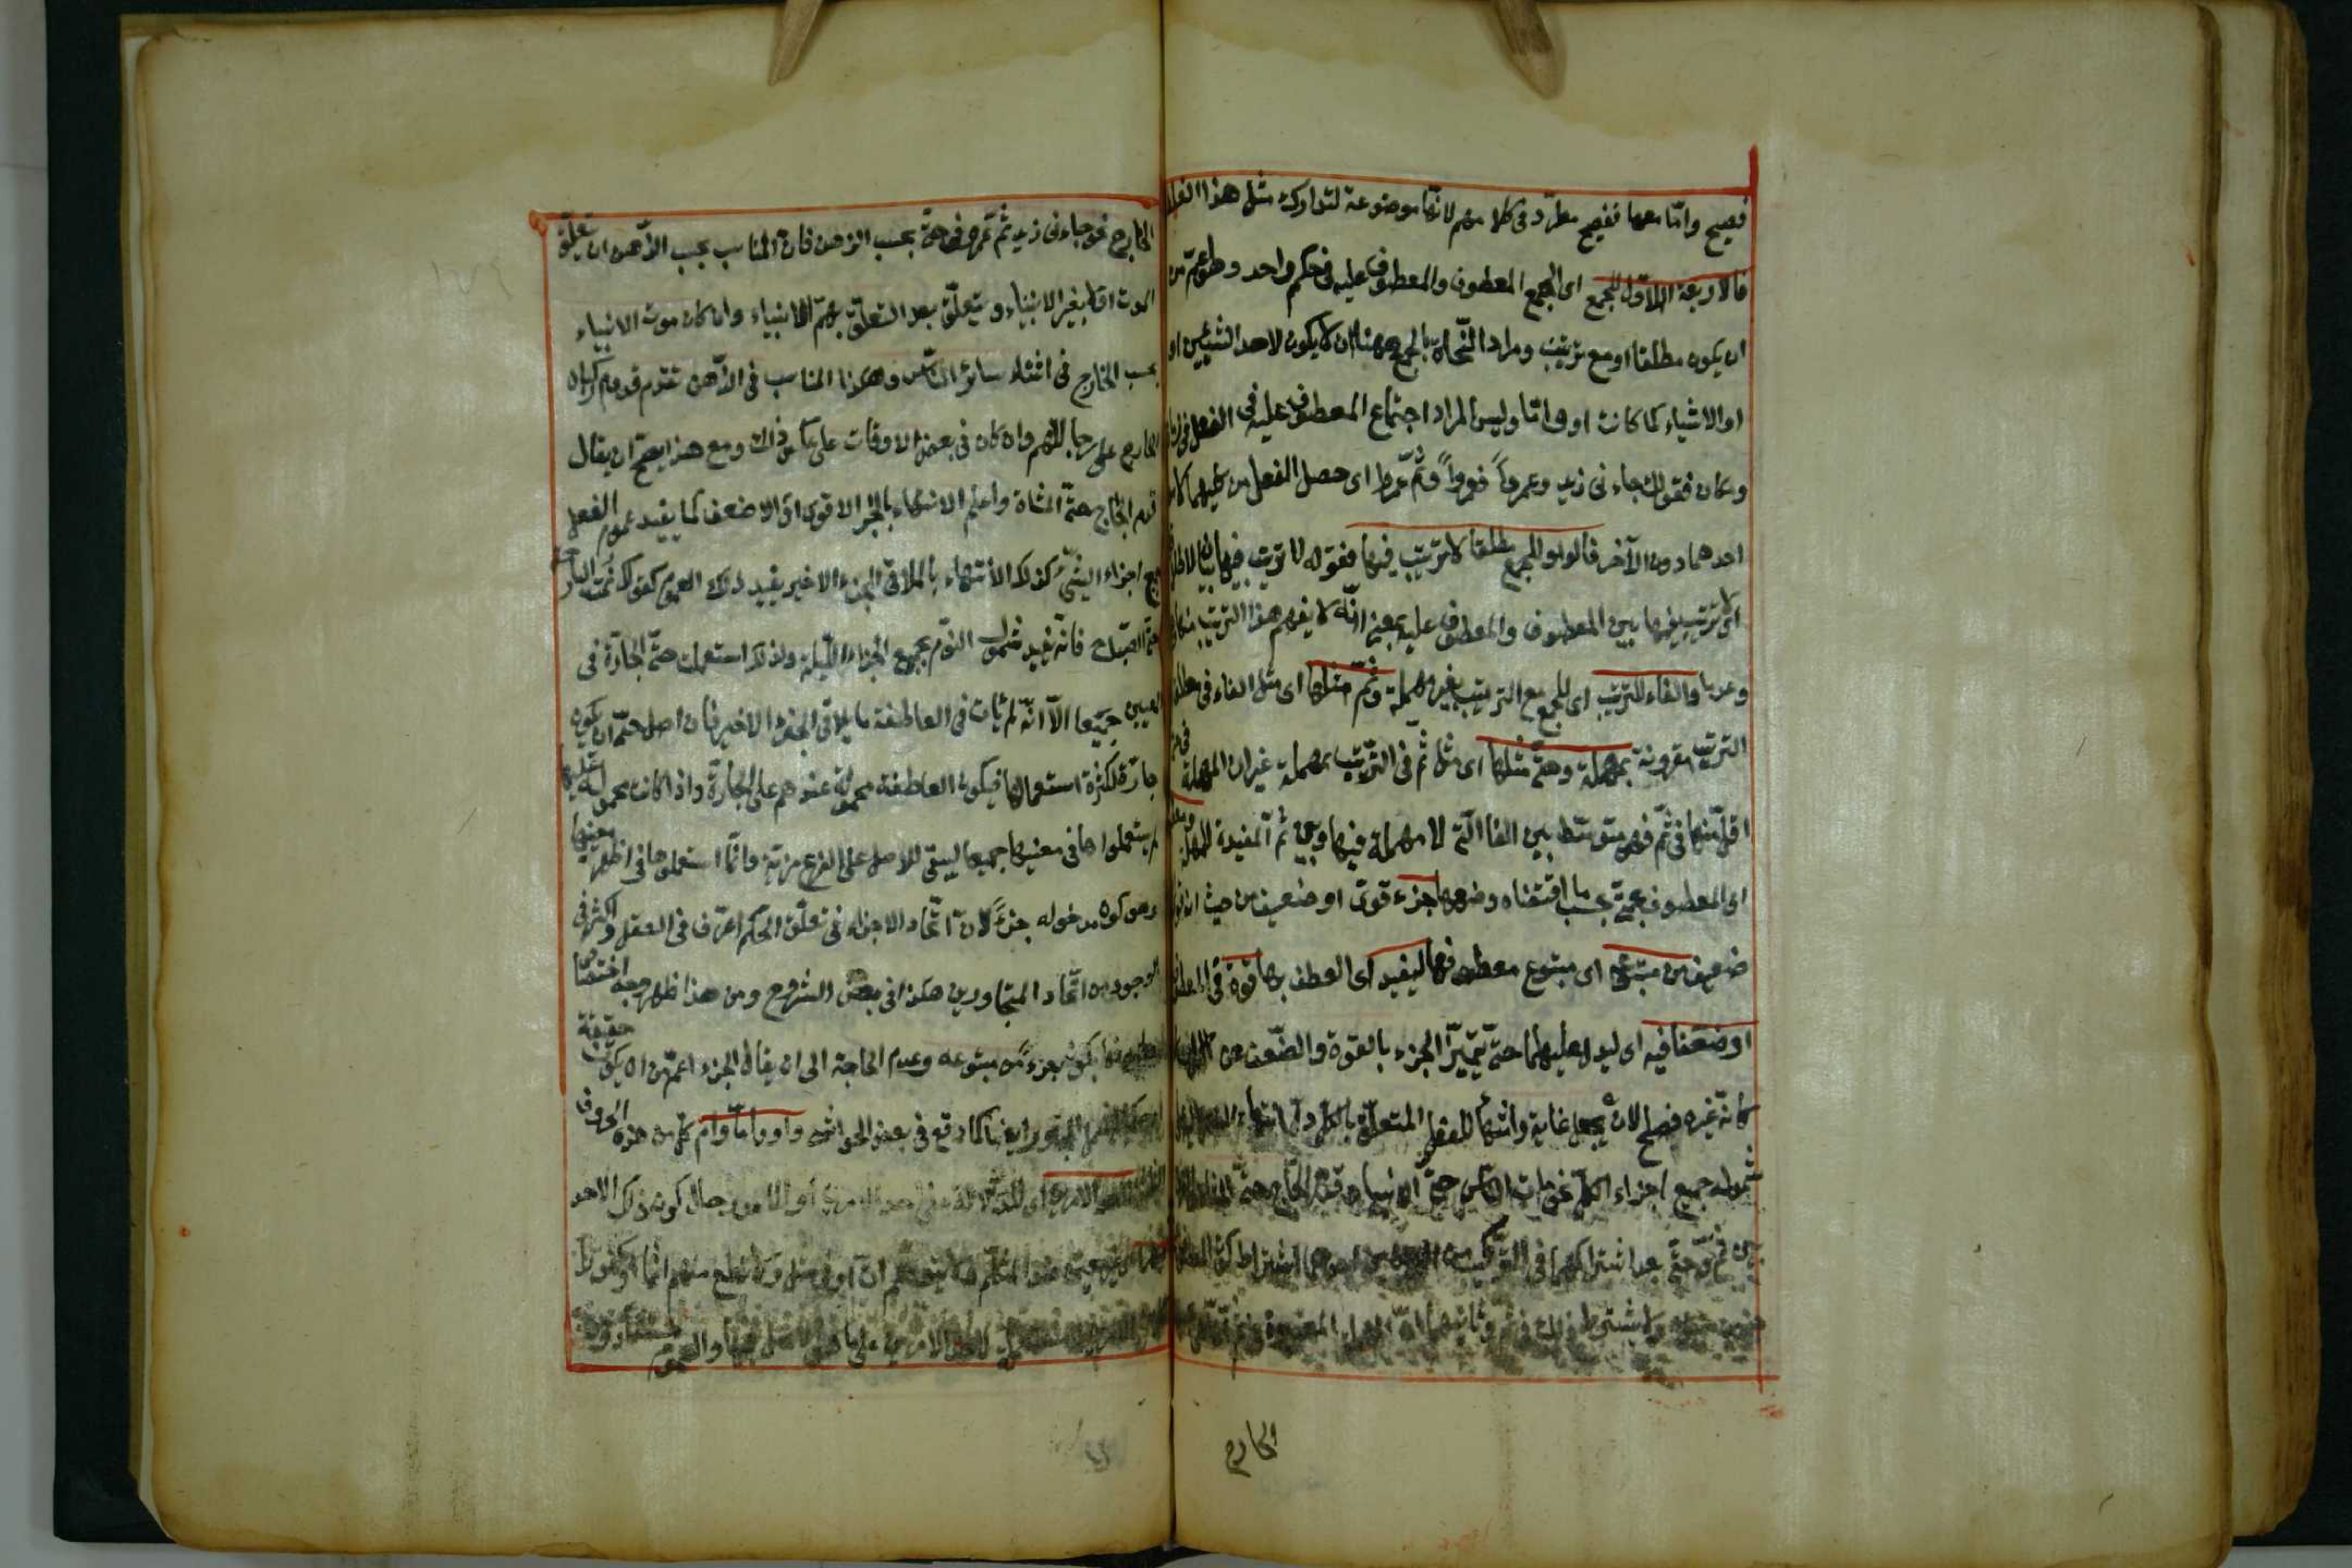 فصيح وامّا معها ففصيح مطرّد فى كلامهم لانّها موضوعة لتدارك مثل هذا الغلط
فالاربعة الاوّل للجمع اى لجمع المعطوف والمعطوف عليه فى حكم واحد وهو اعمّ من
ان يكون مطلقا او مع ترتيب ومراد النّحاة بالجمع ههنا ان لا يكون لاحد الشيئين او
او الاشياء كما كانت او وامّا وليس المراد اجتماع المعطوف عليه فى الفعل فى زمان
ومكان فقولك جاءنى زيد وعمرو او فعمرو او ثمّ عمرو اى حصل الفعل من كليهما لا من
احدهما دون الآخر فالواو للجمع مطلقا لا ترتيب فيها فقوله لا ترتيب فيها بيان الاطلاق
اى لا ترتيب فيها بين المعطوف والمعطوف عليه بمعنى انّه لا يفهم هذا الترتيب منها
وعدما والفاء للترتيب اى للجمع مع الترتيب بغير مهملة وثمّ مثلها اى مثل الفاء فى مطلق
الترتيب مقرونة بمهملة وحتى مثلها اى مثل ثمّ فى التّرتيب بمهملة غير ان المهملة فى حتى
اقلّ منها فى ثمّ فهى متوسّط بين الفاء الّتى لا مهملة فيها وبين ثمّ المفيدة للمهملة ومعطوفها
اى المعطوف بحتى بحسب ما اقتضاه وضعها جزء قوىّ او ضعيف من حيث انه
ضعيف من متبوعه اى متبوع معطوفها ليفيد اى العطف بها قوة فى المعطوف
او ضعفا فيه اى ليدل عليهما حتّى يتميّز الجزء بالقوة والضّعف عن الكلّ
كانّه غيره فصلح لان يجعل غاية وانتهاء للفعل المتعلّق بالكلّ ودلّ انتهاء
شموله جميع اجزاء الكلّ نحو مات النّاس حتّى الانبياء وقدم الحاجّ حتّى المشاة
بين ثمّ وحتّى بعد اشتراكهما فى التّرتيب من احدهما اشتراط كون المعطوف
ولا يشترط ذلك فى ثمّ وثانيهما انّ المهملة المعتبرة فى ثمّ
الخارج
الخارج نحو جاءنى زيد ثمّ عمرو وفى حتّى بحسب الذهن فانّ المناسب بحسب الذّهن ان يتعلّق
الموت اوّلا بغير الانبياء ويتعلّق بعد التعلّق بهم بالانبياء وان كان موت الانبياء
بحسب الخارج فى اثناء سائر النّاس وهكذا المناسب فى الذّهن تقدم قدوم ركبان
الحاج على رجالتهم وان كان فى بعض الاوقات على عكس ذلك ومع هذا يصحّ ان يقال
قدم الحاجّ حتّى المشاة واعلم الانتهاء بالجزء الاقوى او الاضعف كما يفيد عموم الفعل
جميع اجزاء الشىء كذلك الانتهاء بالملاقى للجزء الاخير يفيد ذلك العموم كقولك نمت البارحة
حتّى الصّباح فانّه يفيد شمول النّوم جميع اجزاء اللّيلة ولذلك استعملت حتّى الجارّة فى
المعنيين جميعا الاّ انّه لم يأت فى العاطفة ما يلاقى الجزء الاخير فانّ اصل حتّى ان يكون
جارّة لكثرة استعمالها فيكون العاطفة محمولة عندهم على الجارّة واذا كانت محمولة عليها
لم يستعملوها فى معنييها جميعا ليبقى للاصل على الفرع مزية وانّما استعملوها فى اظهر معنييها
وهو كون مدخولها جزءً لانّ اتّحاد الاجزاء فى تعلّق الحكم اعرف فى العقل واكثر فى
الوجود من اتّحاد المتجاورين هكذا فى بعض الشروح ومن هذا ظهر وجه اختصاص
بكون جزءً من متبوعه وعدم الحاجة الى ان يقال الجزء اعمّ من ان يكون حقيقة
ايضا كما وقع فى بعض الحواشى واو وامّا وام كلّ من هذه الحروف
الامرين اى للدّلالة على احد الامرين او الامور حال كون ذلك الاحد
مبهما غير معيّن عند المتكلّم ولا يتوهّم انّ او فى مثل ولا تطع منهم اثما او كفورا
لاحد الامرين على ما هو الاصل فيها والعموم مستفاد